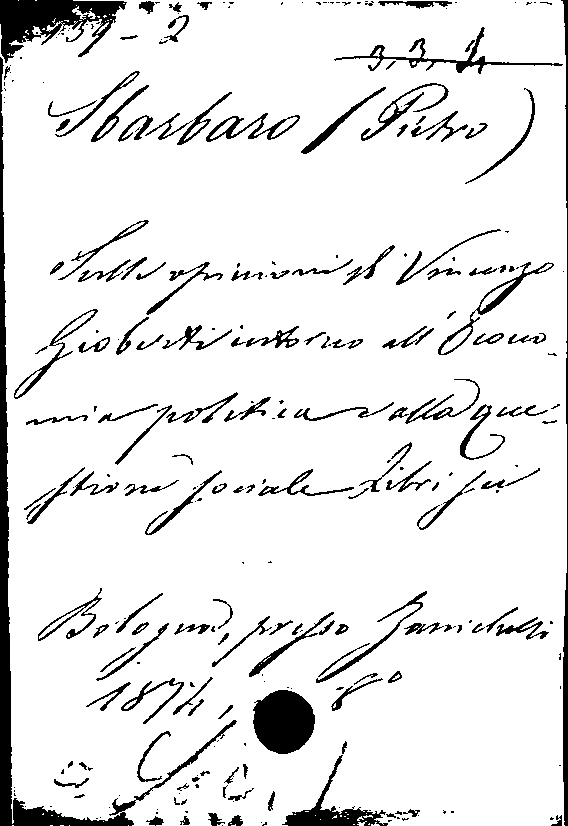 139-2
3, 3, 4
Sbarbaro (Pietro)
Sulle opinioni di Vincenzo
Gioberti intorno all'Econo-
mia politica e alla que-
stione sociale Libri sei
Bologna, presso Zanichelli
1874, 8°